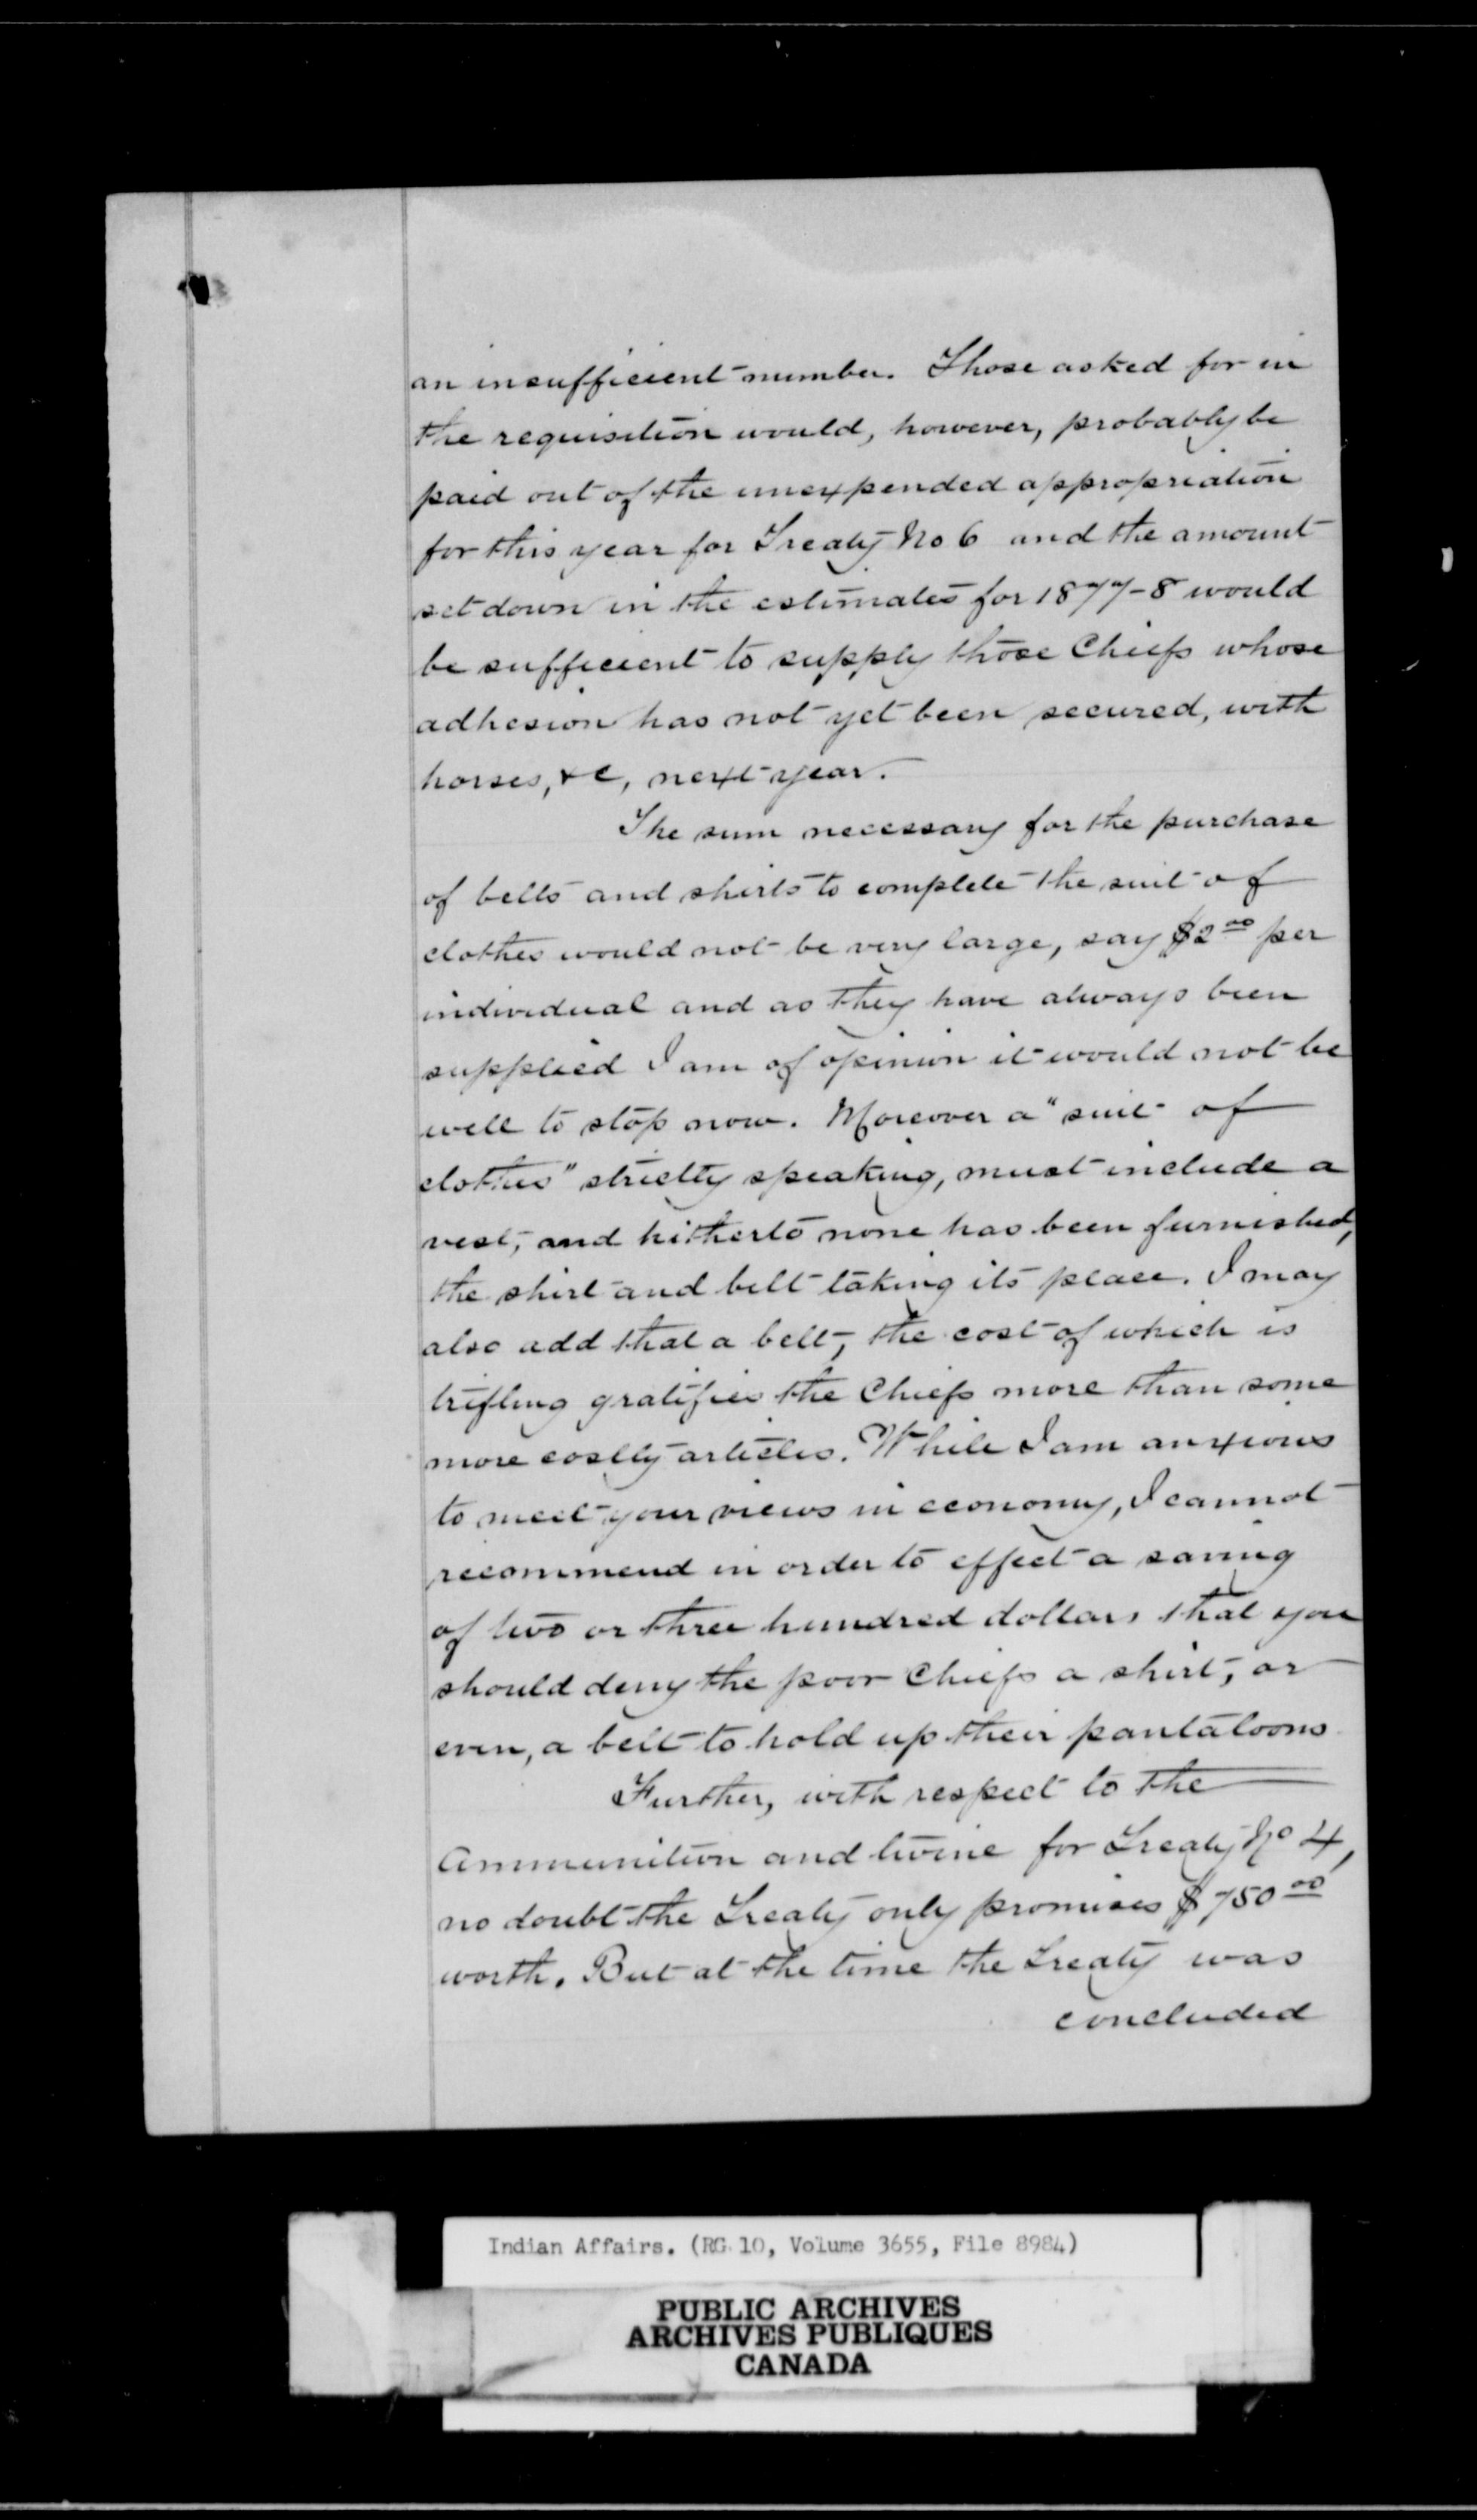 an insufficient number. Those asked for in
the requisition would, however, probably be
paid out of the unexpended appropriation
for this year for Treaty No 6 and the amount
set down in the estimates for 1877-8 would
be sufficient to supply those Chiefs whose
adhesion has not yet been secured, with
horses, &c, next year.
The sum necessary for the purchase
of belts and shirts to complete the suit of
clothes would not be very large, say $2 00 per
individual and as they have always been
supplied I am of opinion it would not be
well to stop now. Moreover a "suit of
clothes" strictly speaking, must include a
vest, and hitherto none has been furnished,
the shirt and belt taking its place. I may
also add that a belt, the cost of which is
trifling gratifies the Chiefs more than some
more costly articles. While I am anxious
to meet your views in economy, I cannot
recommend in order to effect a saving
of two or three hundred dollars that you
should deny the poor Chiefs a shirt, or
even, a belt to hold up their pantaloons
Further, with respect to the
Ammunition and twine for Treaty No 4,
no doubt the Treaty only promises $750 00
worth. But at the time the Treaty was
concluded
Indian Affairs. (RG 10, Volume 3655, File 8984)
PUBLIC ARCHIVES
ARCHIVES PUBLIQUES
CANADA